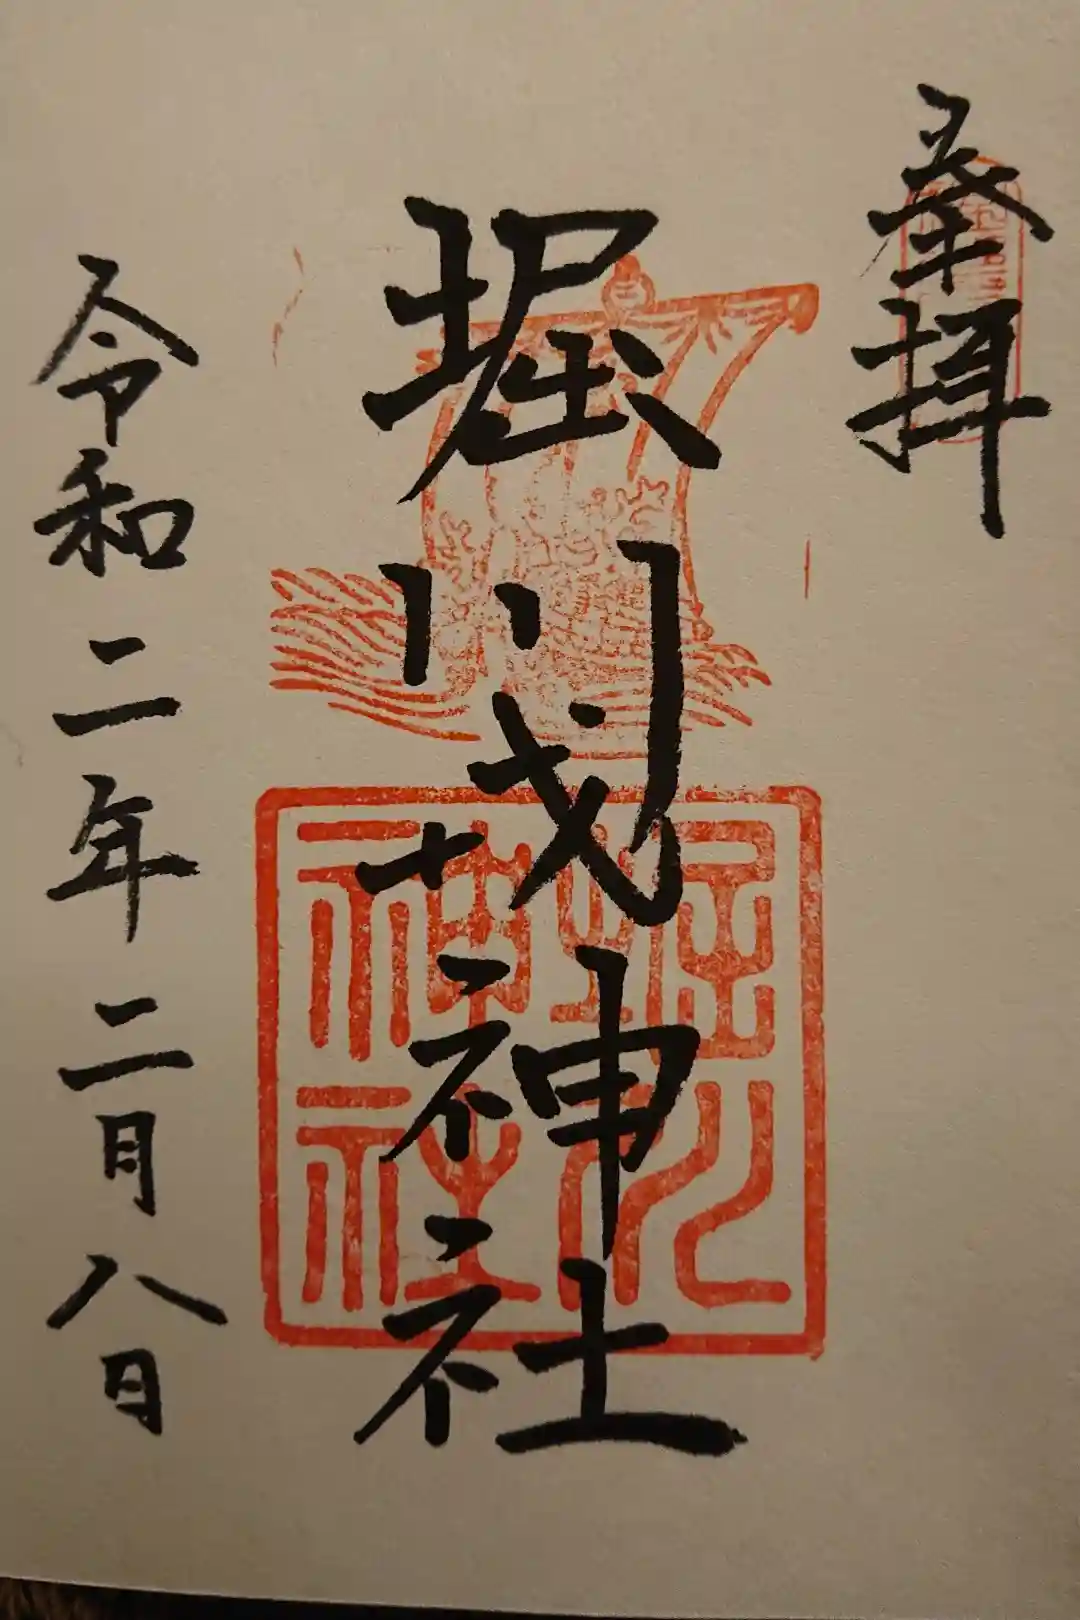 奉拝
堀川戎神社
令和二年二月八日
堀川
神社